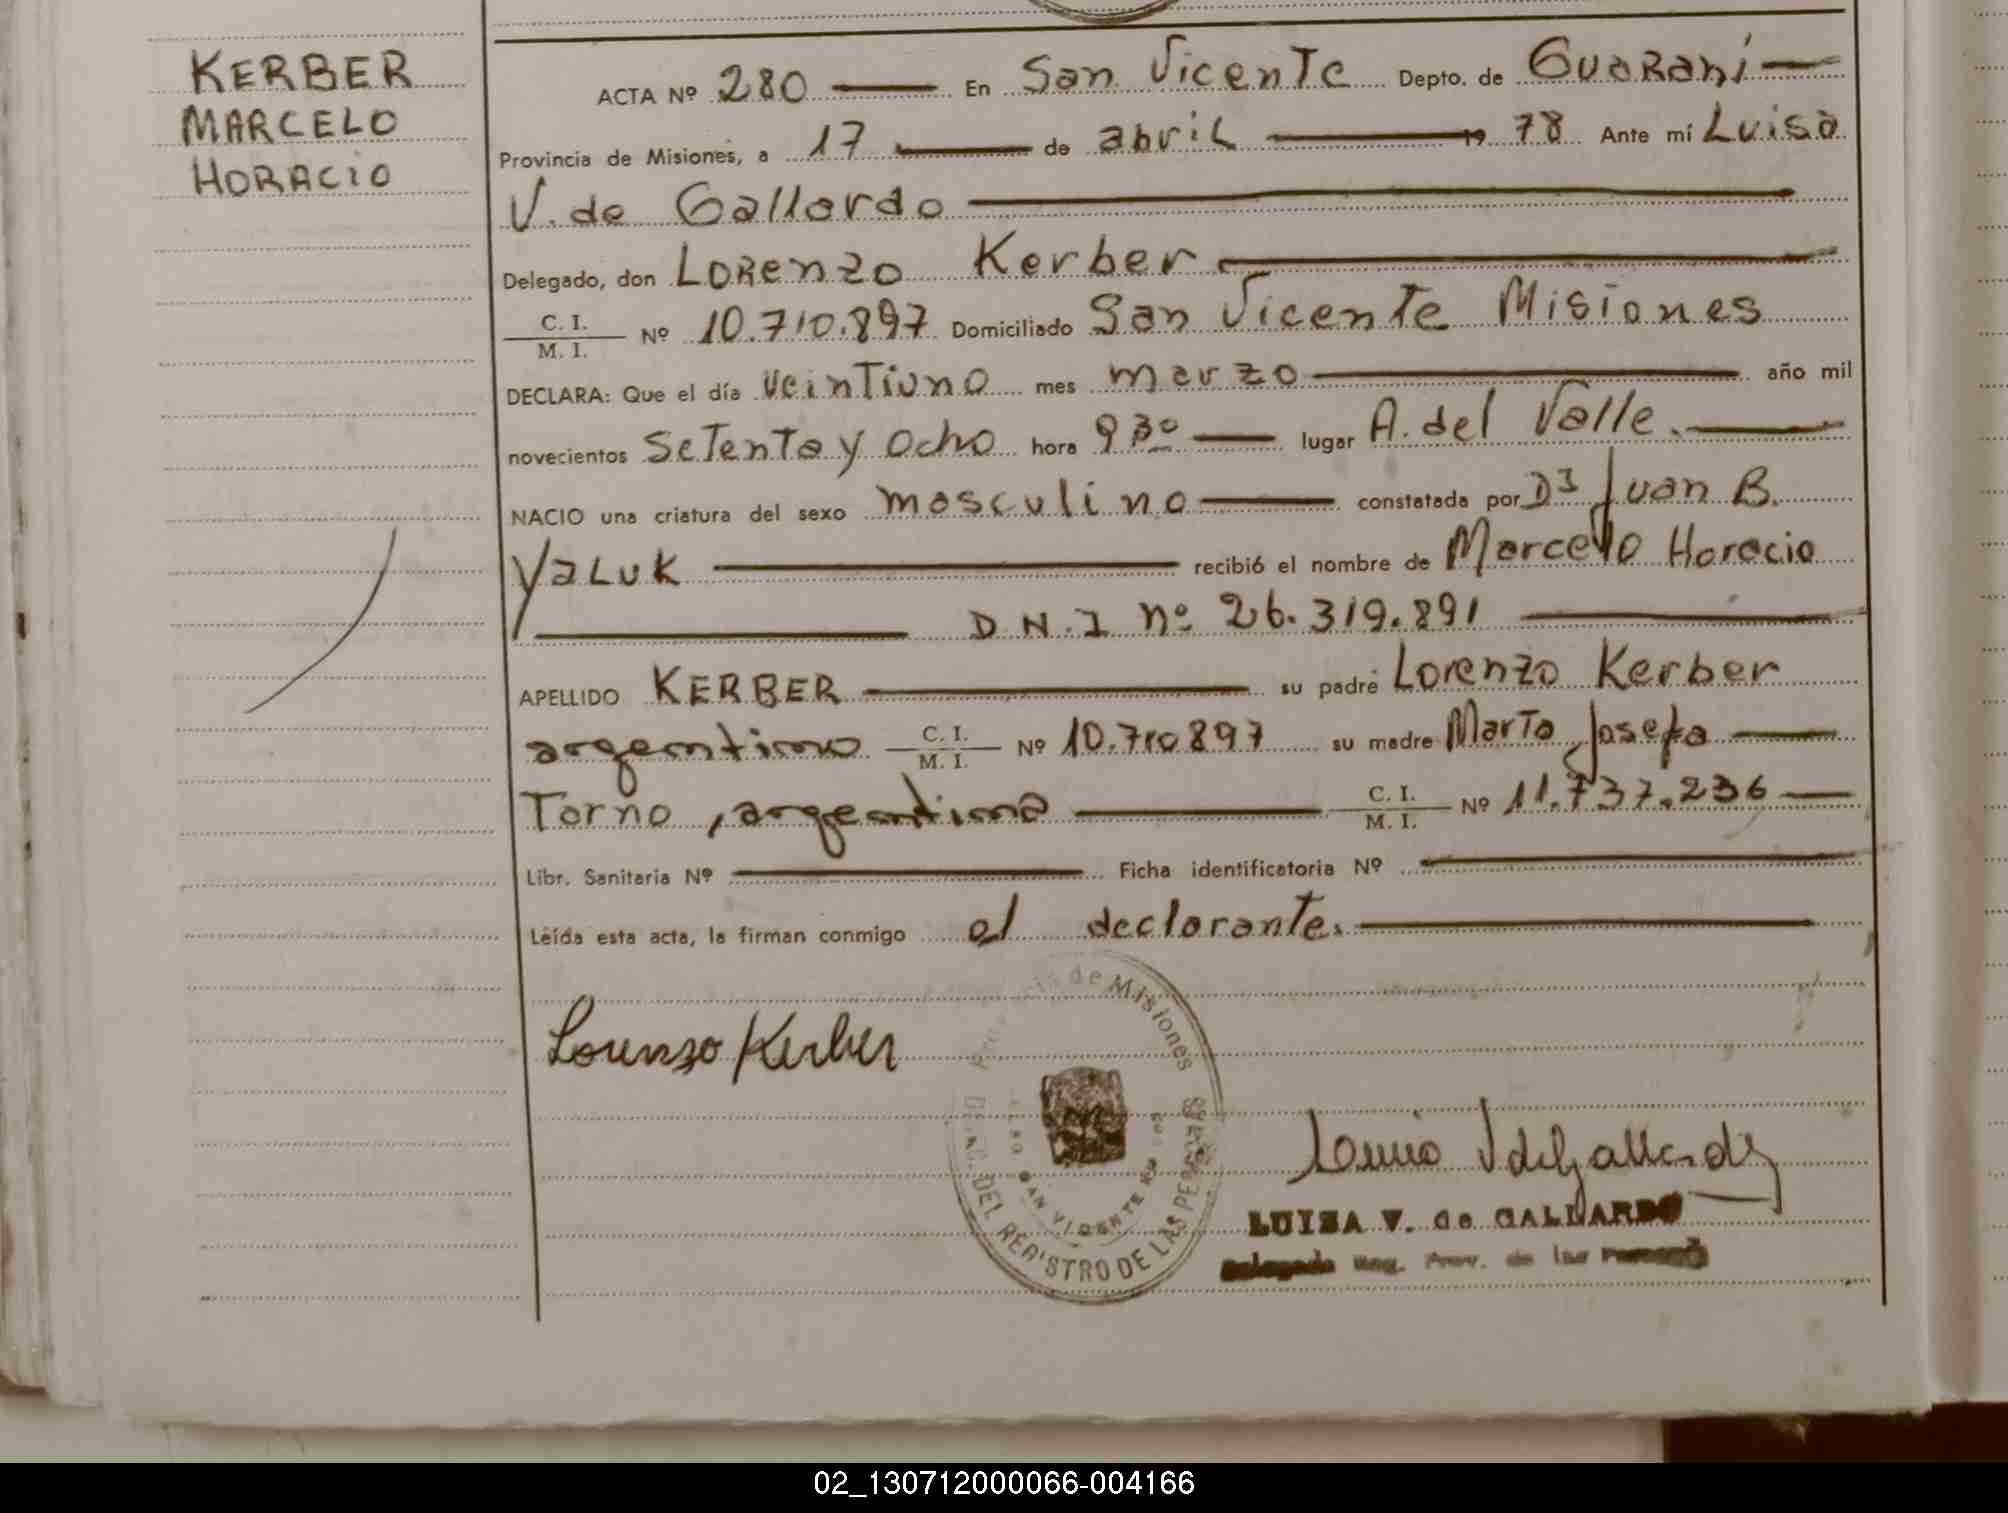 KERBER
MARCELO
HORACIO
ACTA Nº 280 En San Vicente Depto. de Guaraní
Provincia de Misiones, a 17 de abril 19 78 Ante mí Luisa
V. de Gallardo
Delegado, don Lorenzo Kerber
C. I. / M. I. Nº 10.710.897 Domiciliado San Vicente Misiones
DECLARA: Que el día veintiuno mes marzo año mil
novecientos setenta y ocho hora 9 30 lugar A. del Valle.
NACIO una criatura del sexo masculino constatada por Dr Juan B.
Yaluk recibió el nombre de Marcelo Horacio
D.N.I nº 26.319.891
APELLIDO KERBER su padre Lorenzo Kerber
argentino C. I. / M. I. Nº 10.710897 su madre Marta Josefa
Torno, argentina C. I. / M. I. Nº 11.737.236
Libr. Sanitaria Nº Ficha identificatoria Nº
Leída esta acta, la firman conmigo el declarante.
Lorenzo Kerber
Provincia de Misiones
DEL REGISTRO DE LAS PERSONAS
SAN VICENTE
Luisa V de Gallardo
LUISA V. de GALLARDO
Delegada Reg. Prov. de las Personas
02_130712000066-004166